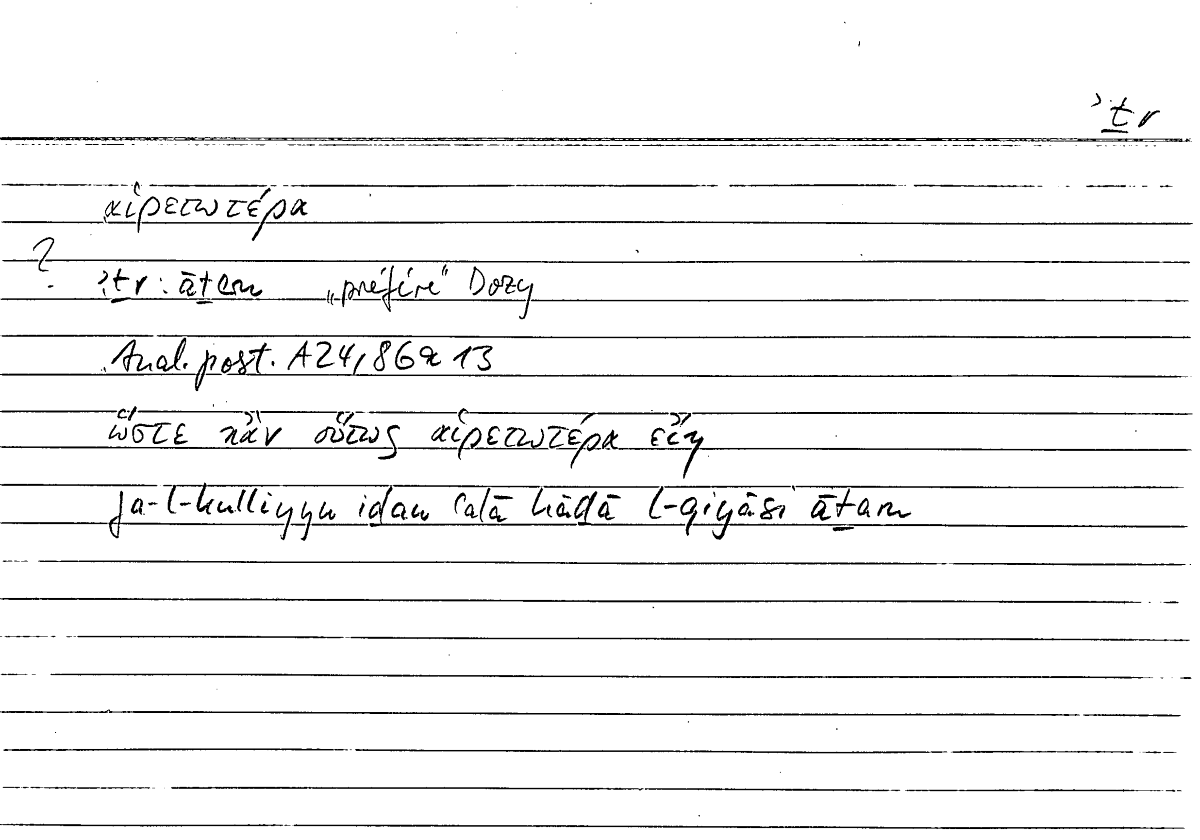 ʾṯr
αἱρετωτέρα
?
ʾṯr : āṯaru „préféré“ Dozy
Anal. post. A24, 86a 13
ὥστε κἂν οὕτως αἱρετωτέρα εἴη
fa-l-kulliyyu iḏan ʿalā hāḏā l-qiyāsi āṯaru